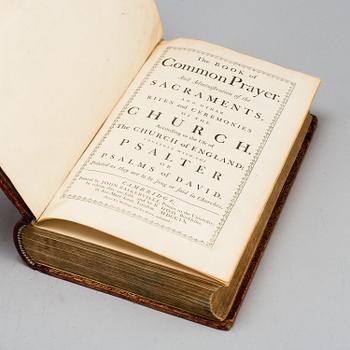 The BOOK of
Common Prayer,
And Administration of the
SACRAMENTS,
AND OTHER
RITES and CEREMONIES
OF THE
CHURCH,
According to the Use of
The CHURCH of ENGLAND;
TOGETHER WITH THE
PSALTER
OR
PSALMS of DAVID,
Pointed as they are to be sung or said in Churches.
CAMBRIDGE,
Printed by JOHN BASKERVILLE, Printer to the University;